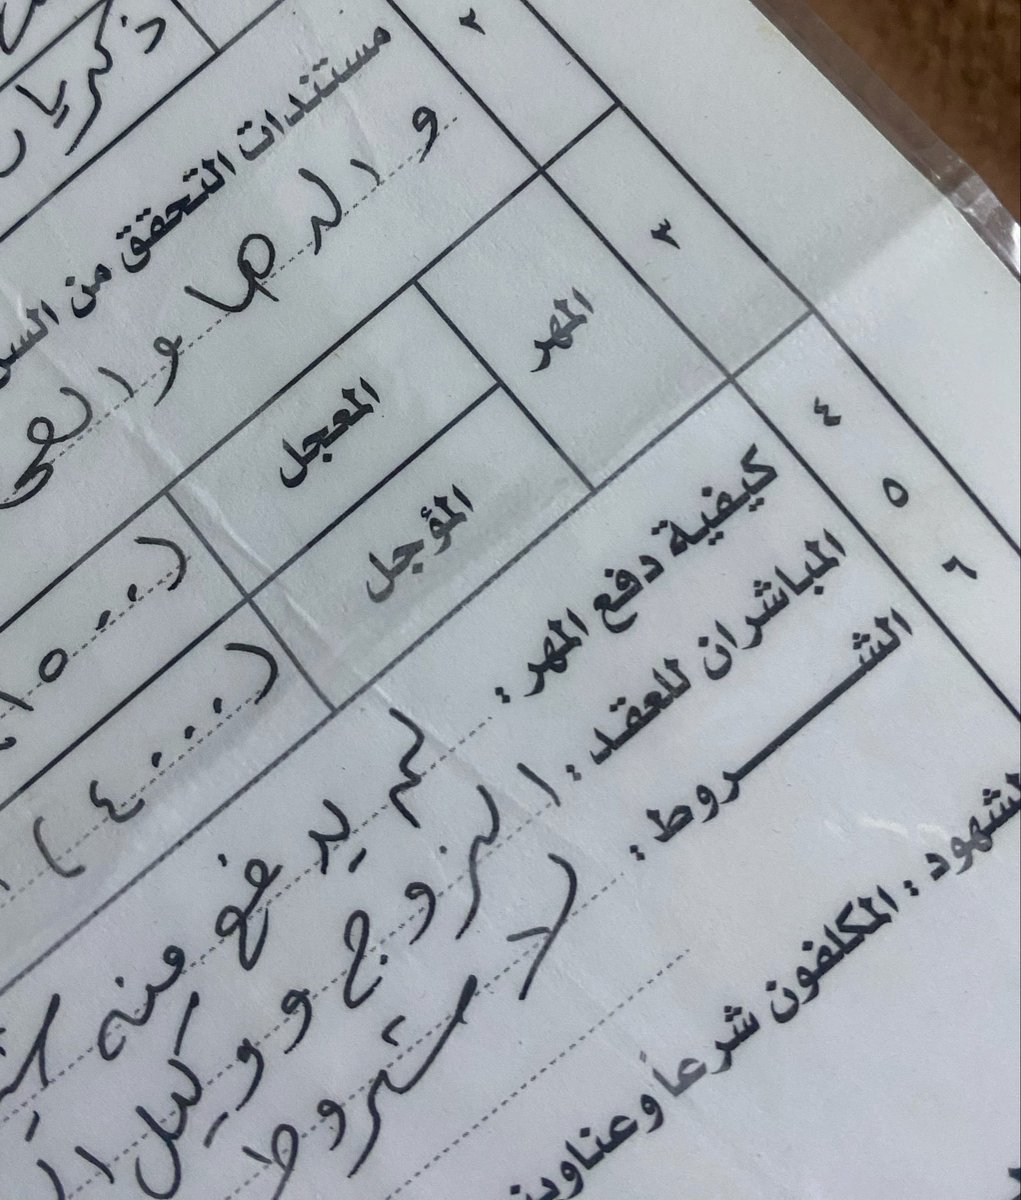 ذكريات
٢
مستندات التحقق من
والدها و
٣
المهر
المعجل
(٥٠٠٠
المؤجل
(٤٠٠٠)
٤
كيفية دفع المهر : لم يدفع منه
٥
المباشران للعقد : الزوج ووكيل
٦
الشـــروط : لا شروط
الشهود : المكلفون شرعا وعناوين